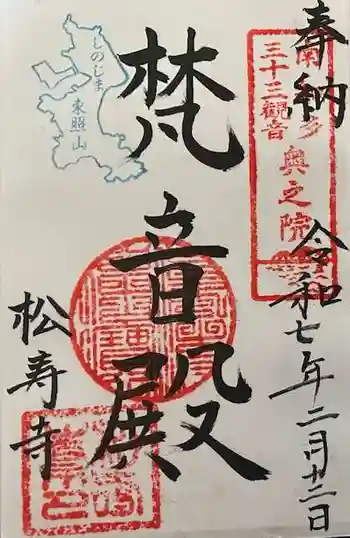 奉納
南知多
三十三観音
奥之院
令和七年二月十二日
梵音殿
しのじま
東照山
松寿寺